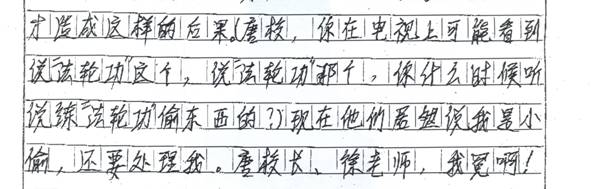 才造成这样的后果。(唐校，你在电视上可能看到
说“法轮功”这个，说“法轮功”那个，你什么时候听
说练“法轮功”偷东西的？)现在他们居然说我是小
偷，还要处理我。唐校长、徐老师，我冤啊！